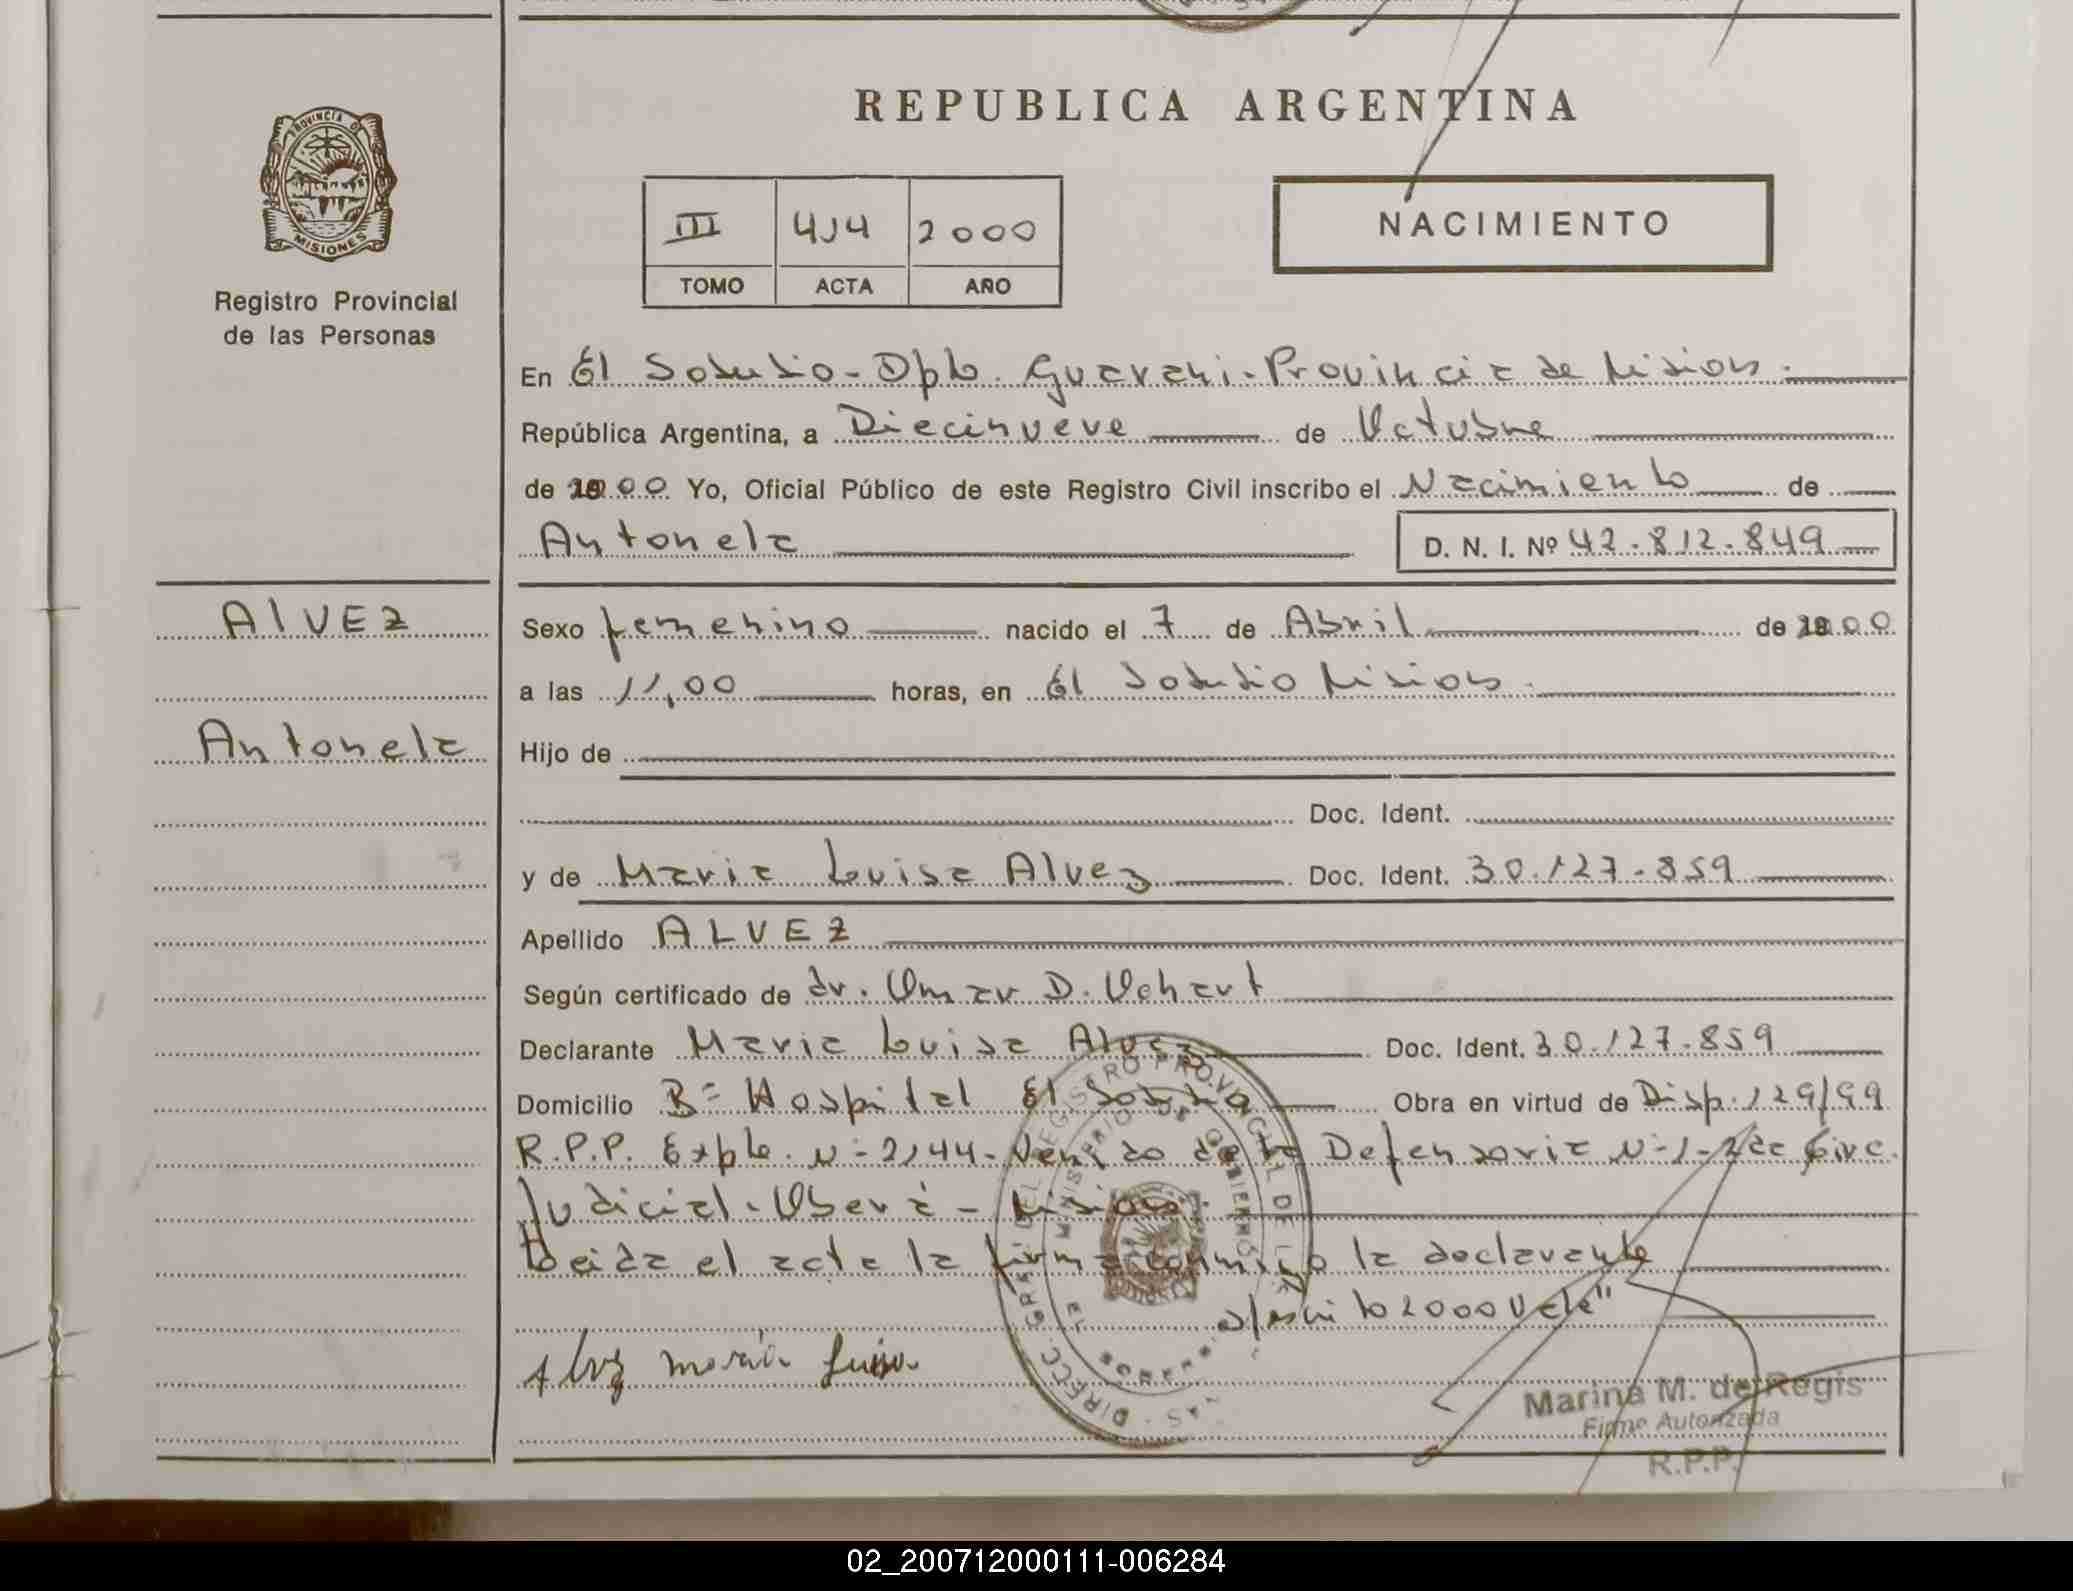 REPUBLICA ARGENTINA
PROVINCIA DE
MISIONES
Registro Provincial
de las Personas
III 414 2000
TOMO ACTA AÑO
NACIMIENTO
En El Soberbio - Dpto. Guarani - Provincia de Misiones.
República Argentina, a Diecinueve de Octubre
de 2000 Yo, Oficial Público de este Registro Civil inscribo el Nacimiento de
Antonela D. N. I. Nº 42.812.849
ALVEZ
Antonela
Sexo femenino nacido el 7 de Abril de 2000
a las 11,00 horas, en El Soberbio Misiones.
Hijo de
Doc. Ident.
y de Maria Luisa Alvez Doc. Ident. 30.127.859
Apellido ALVEZ
Según certificado de dr. Omar D. Ochart
Declarante Maria Luisa Alvez Doc. Ident. 30.127.859
Domicilio Bº Hospital El Soberbio Obra en virtud de Disp. 129/99
R.P.P. Expte. Nº 2144 - Venido de la Defensoria Nº 1 - 2da Circ.
Judicial - Oberá - Misiones.
Leida el acta la firma conmigo la declarante
s/escrito 2000 Vale"
Alvez maria luisa
DIRECC. GRAL. DEL REGISTRO PROVINCIAL DE LAS
MINISTERIO DE GOBIERNO
Marina M. de Regis
Firma Autorizada
R.P.P.
02_200712000111-006284